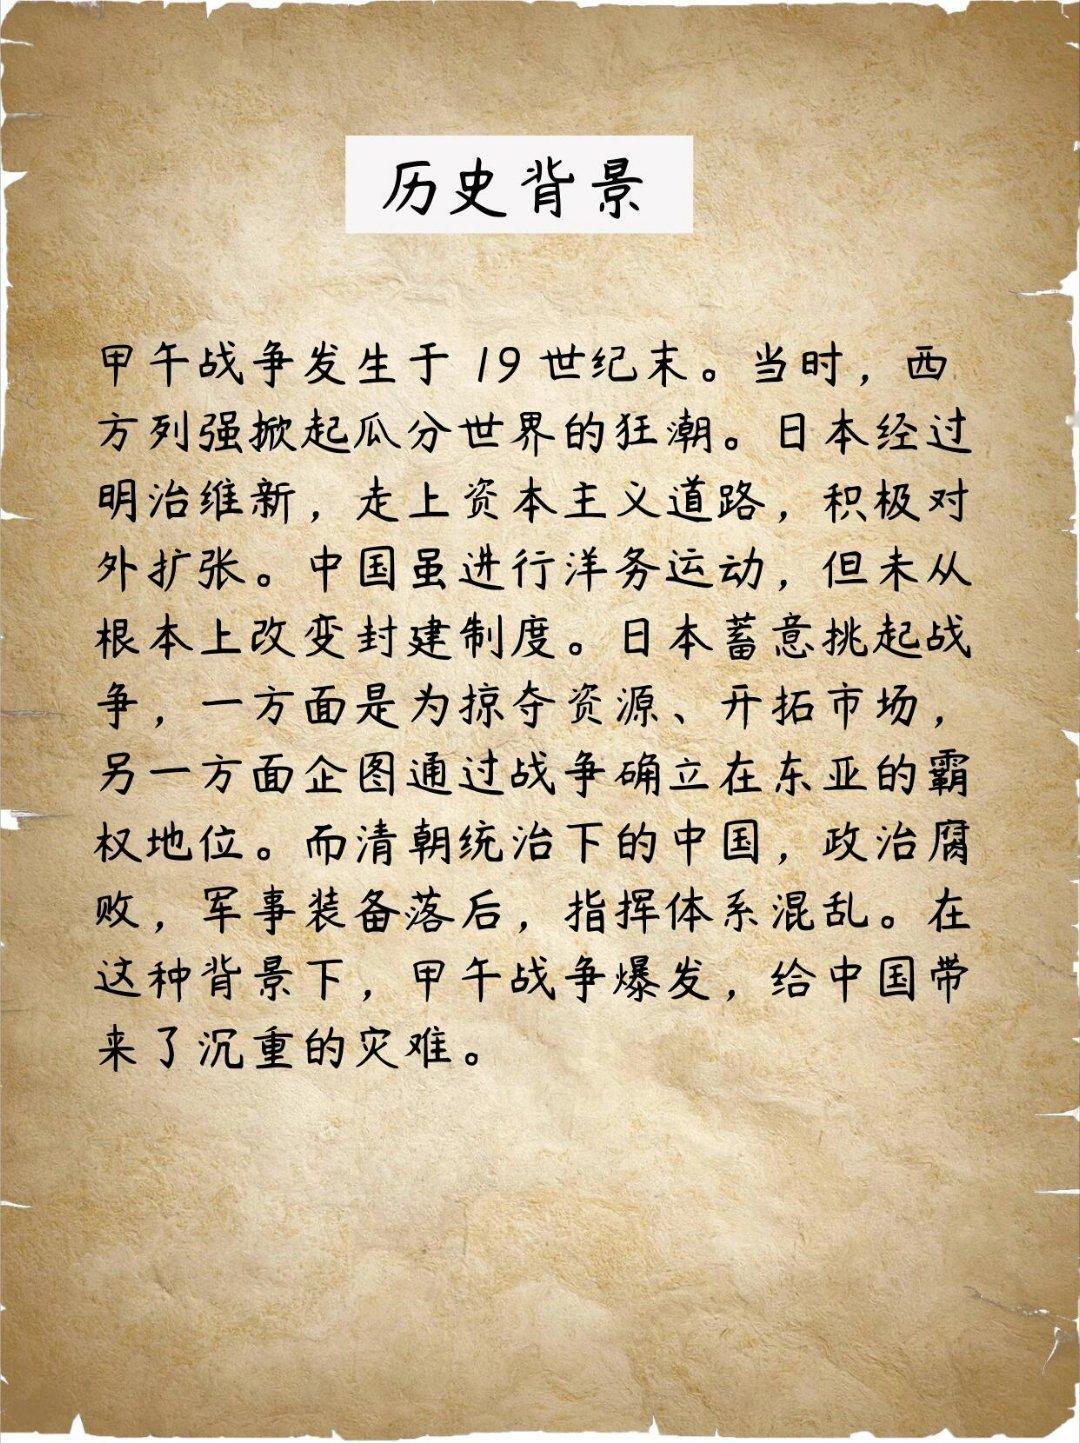 历史背景
甲午战争发生于 19 世纪末。当时，西
方列强掀起瓜分世界的狂潮。日本经过
明治维新，走上资本主义道路，积极对
外扩张。中国虽进行洋务运动，但未从
根本上改变封建制度。日本蓄意挑起战
争，一方面是为掠夺资源、开拓市场，
另一方面企图通过战争确立在东亚的霸
权地位。而清朝统治下的中国，政治腐
败，军事装备落后，指挥体系混乱。在
这种背景下，甲午战争爆发，给中国带
来了沉重的灾难。